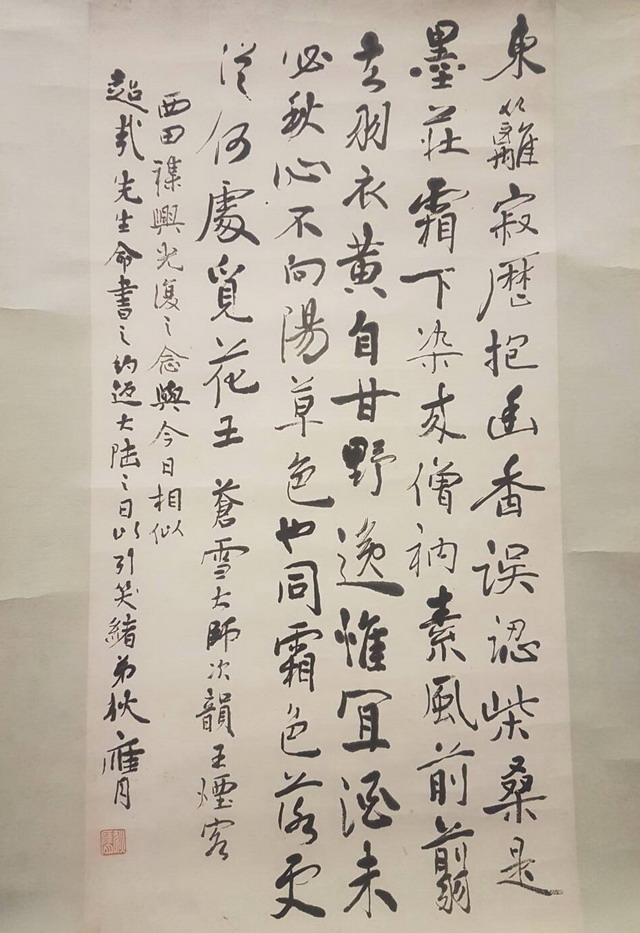 東籬寂歷抱幽香誤認柴桑是
墨莊霜下染成僧衲素風前翦
出羽衣黃自甘野逸惟宜酒未
必秋心不向陽草色也同霜色落更
從何處覓花王 蒼雪大師次韻王煙客
西田雜興光復之念與今日相似
超哉先生命書之約返大陸之日以引笑緒弟狄膺